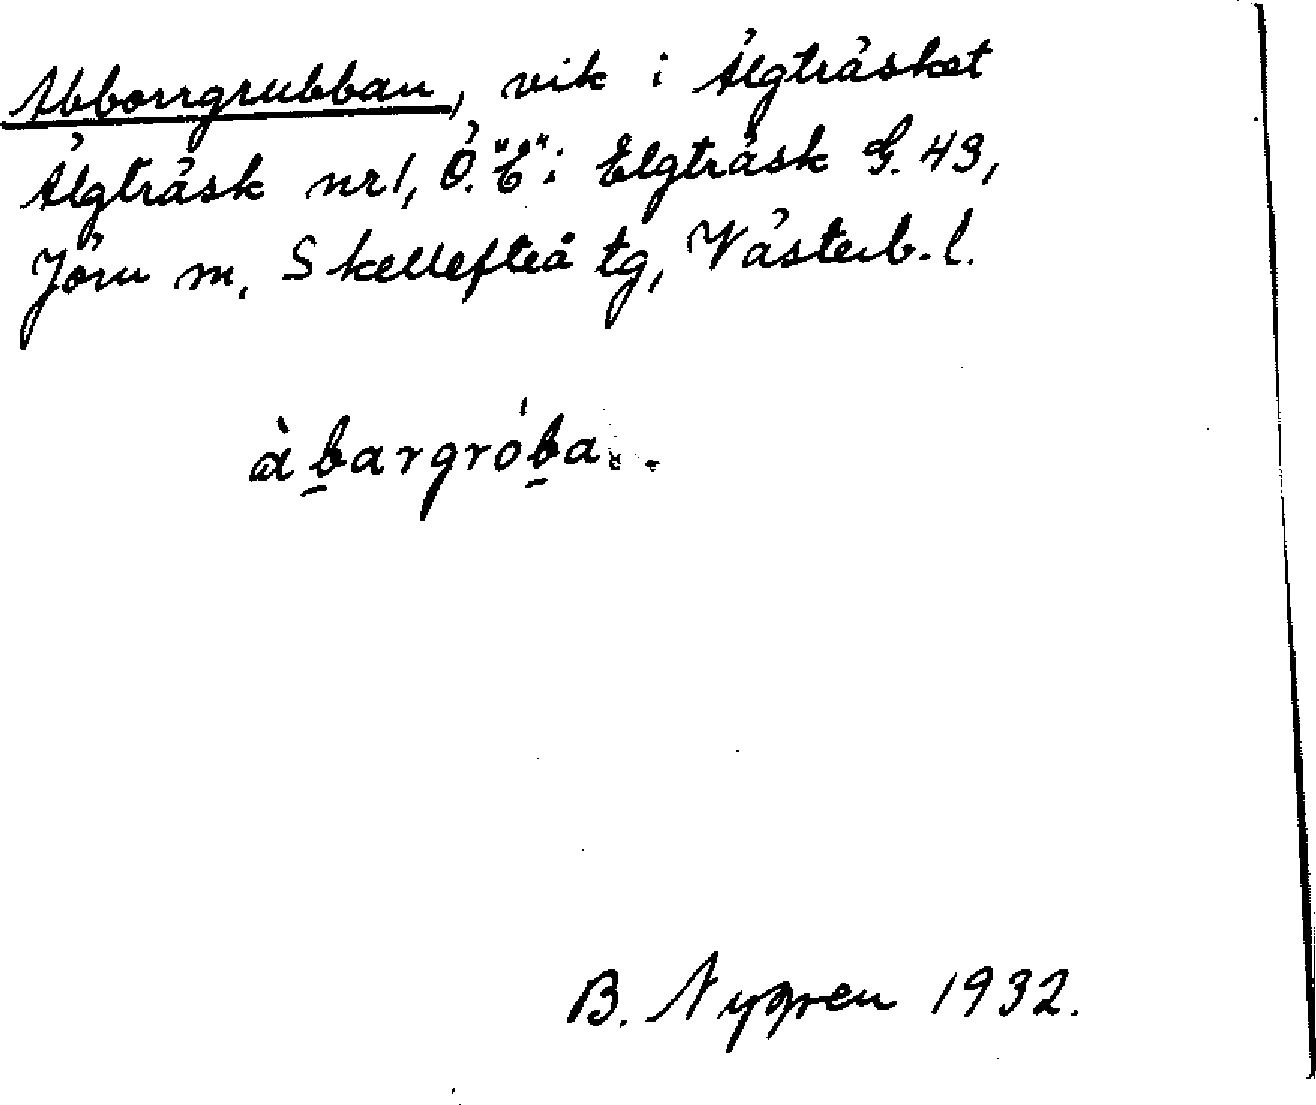 Abborrgrubban, vik i Älgträsket
Älgträsk nr 1, Ö. "E" i Elgträsk G. 43,
Jörn sn, Skellefteå tg, Västerb. l.
àbargróba..
B. Nygren 1932.